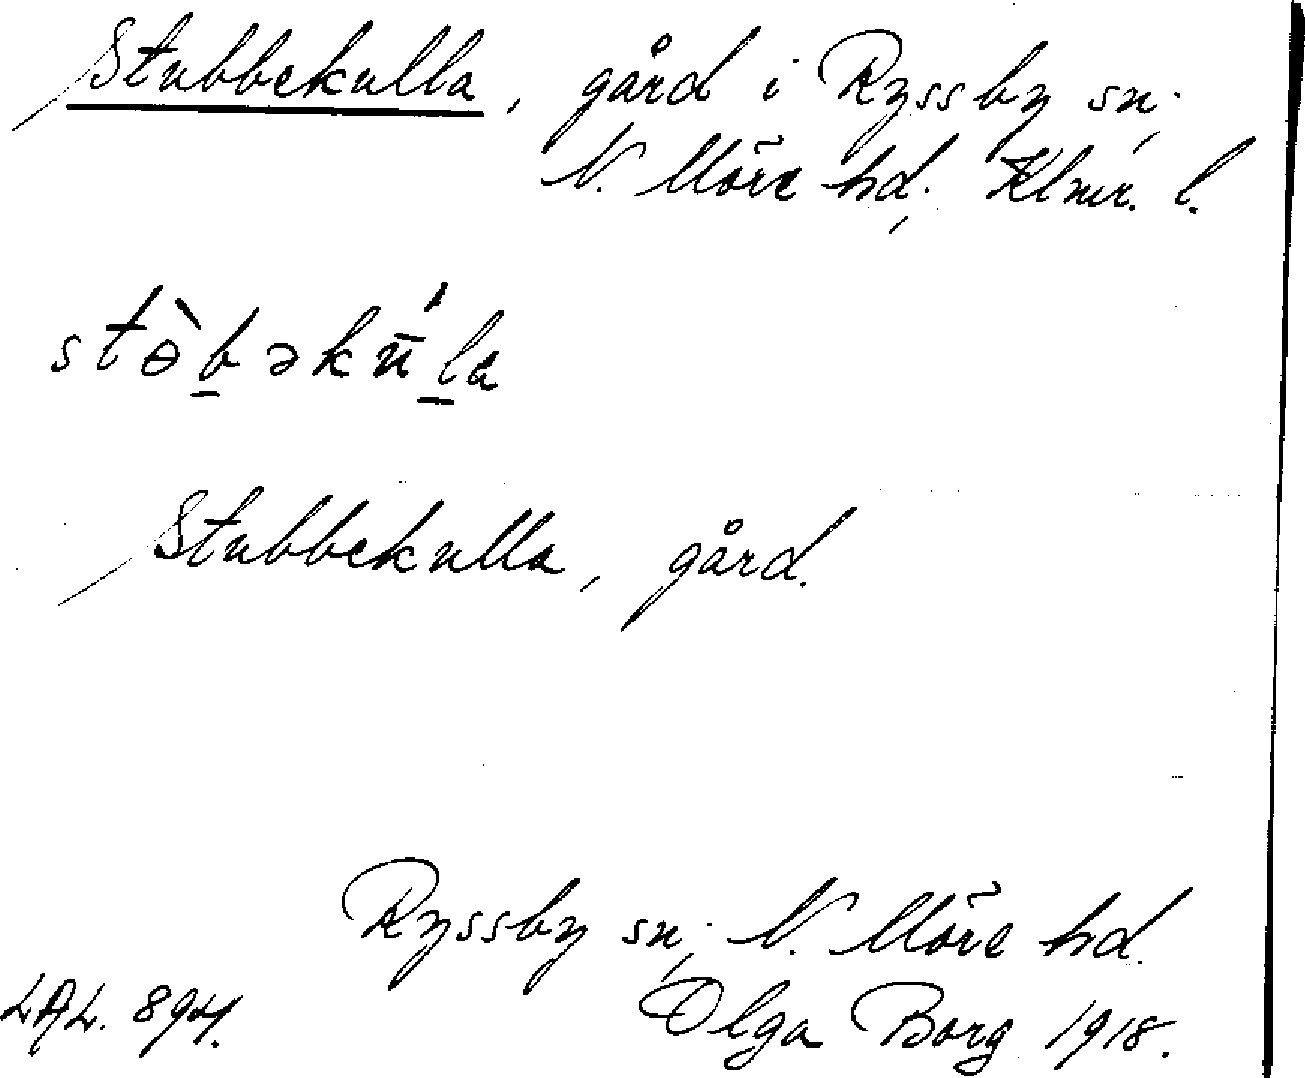 Stubbekulla, gård i Ryssby sn;
N. Möre hd; Klmr. l.
stɵ̀b̲əkū́l̲a
Stubbekulla, gård.
Ryssby sn; N. Möre hd.
LAL. 894.
Olga Borg 1918.